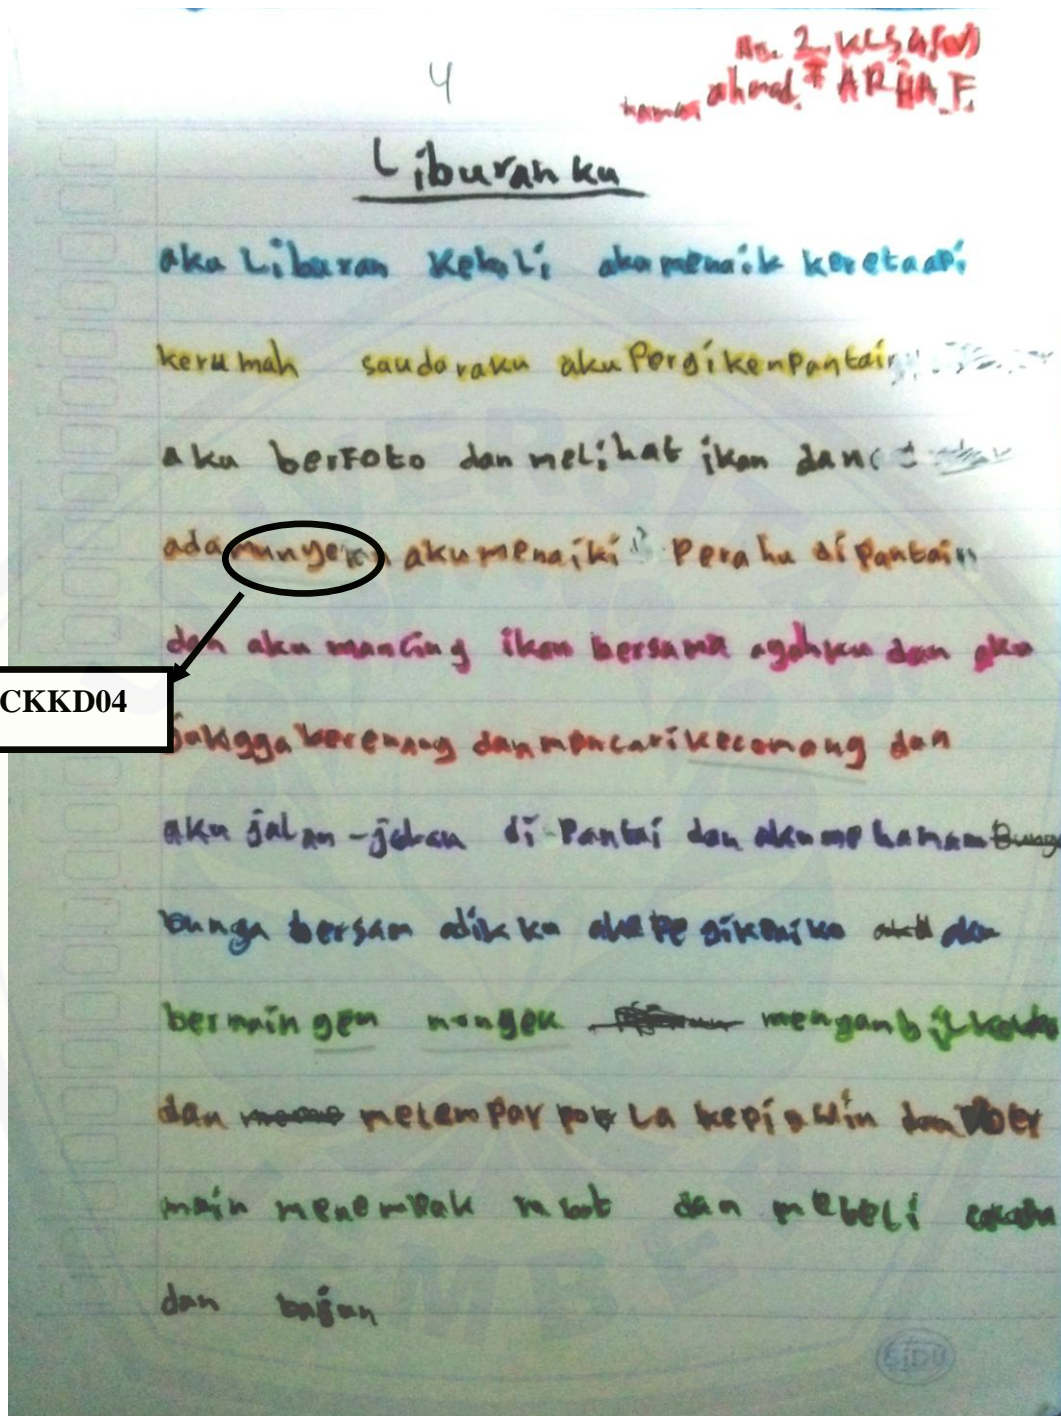 No. 2 KLS 4 (IV)
4
nama ahmad. F ARHA. F.
Liburanku
aku Liburan Kebali aku menaik keretaapi
kerumah saudaraku aku Pergikenpantain
aku berfoto dan melihat ikan dan
ada munyek aku menaiki Perahu dipantain
dan aku mancing ikan bersama ayahku dan aku
CKKD04
berenang dan mencari kecomang dan
aku jalan-jalan di-Pantai dan aku menanam Bunga
bunga bersam adikku aku aku
bermain gem mongek mengambil
dan melempar bo La kepingwin dan ber
main menempak robot dan mebeli
dan bajun
SiDU